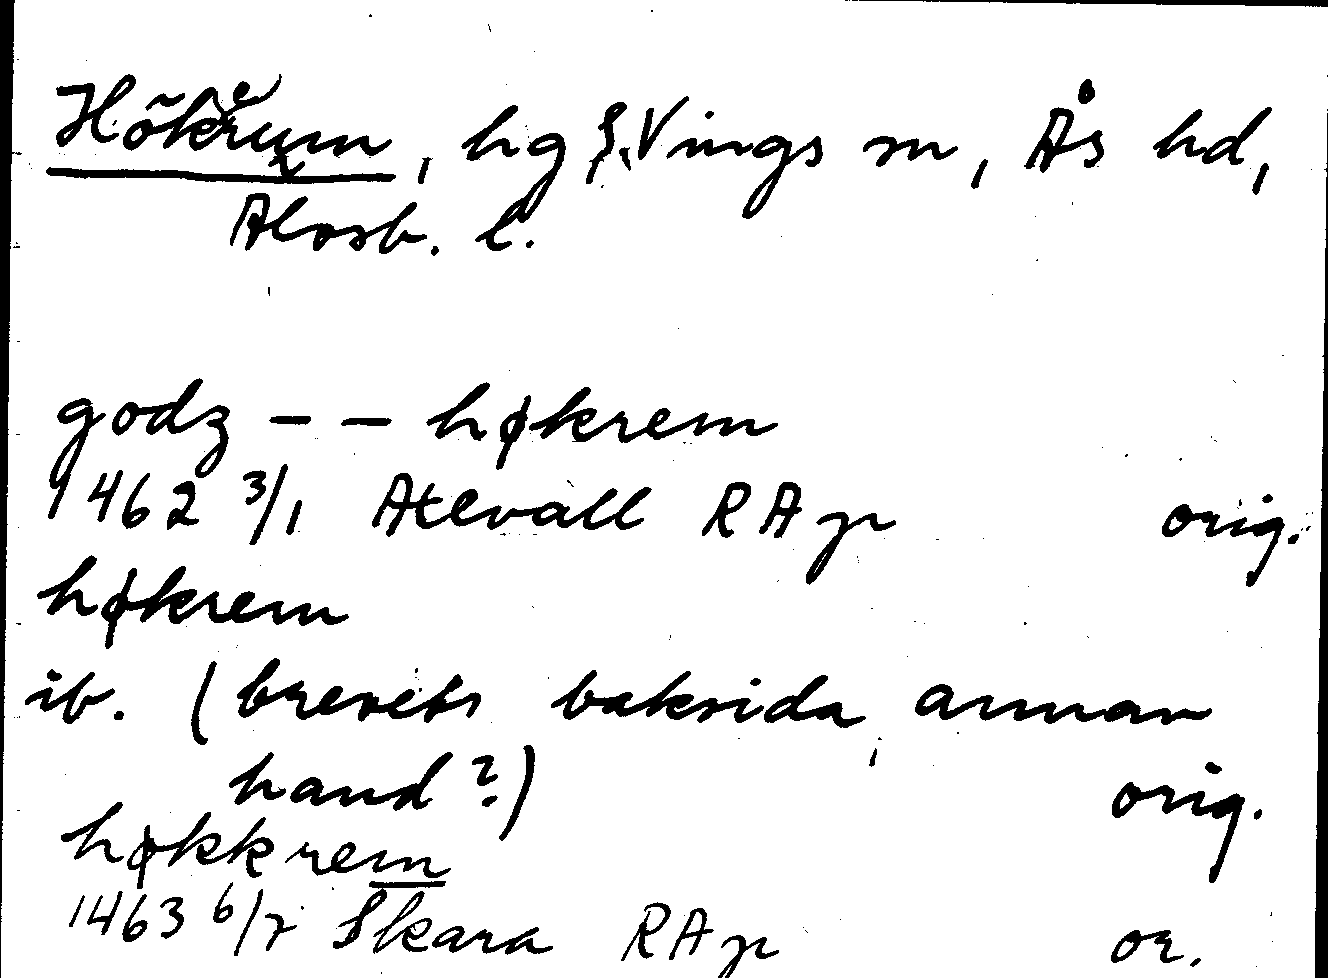 Hökerum, hg S. Vings sn, Ås hd,
Älvsb. l.
godz - - høkrem
1462 3/1 Atevall RAp orig.
høkrem
ib. (brevets baksida, annan
hand?) orig.
høkkrem
1463 6/7 Skara RAp or.